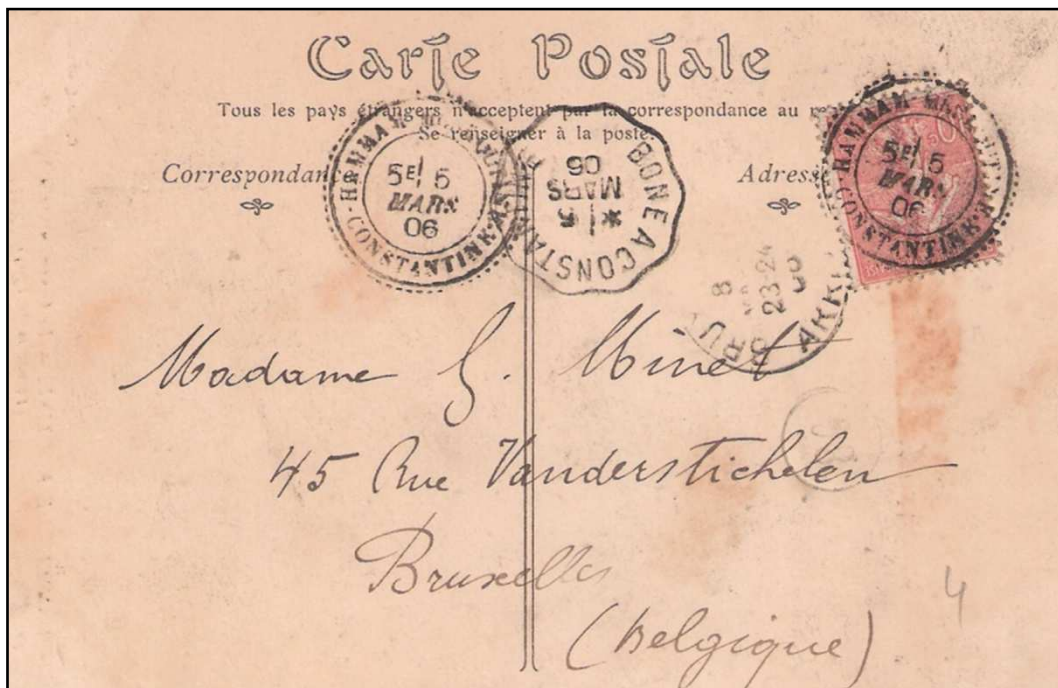 Carte Postale
Tous les pays étrangers n'acceptent par la correspondance au
Se renseigner à la poste.
Correspondance
Adresse
HAMMAM
5E/ 5
MARS
06
CONSTANTINE
BONE A CONSTANTINE
*/ 6
MARS
06
HAMMAM
5E/ 5
MARS
06
CONSTANTINE
8
23-24
ARRI
Madame G. Minet
45 Rue Vanderstichelen
Bruxelles
(Belgique)
4